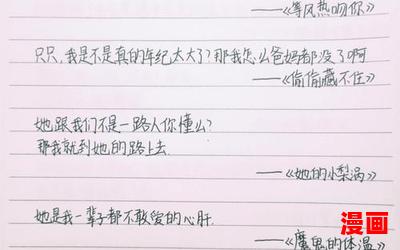 ——《等风热吻你》
只只,我是不是真的年纪太大了?那我怎么爸妈都没了啊
——《偷偷藏不住》
她跟我们不是一路人你懂么?
那我就到她的路上去.
——《她的小梨涡》
她是我一辈子都不敢爱的心肝.
漫画
——《魔鬼的体温》